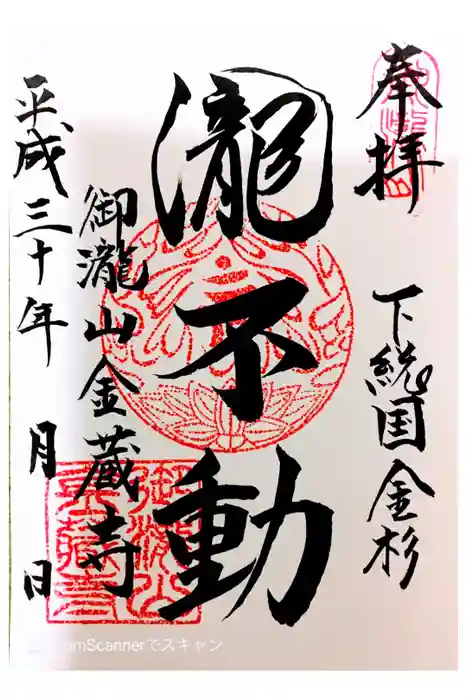 奉拝
下総国金杉
瀧不動
御瀧山金蔵寺
平成三十年 月 日
Scannerでスキャン